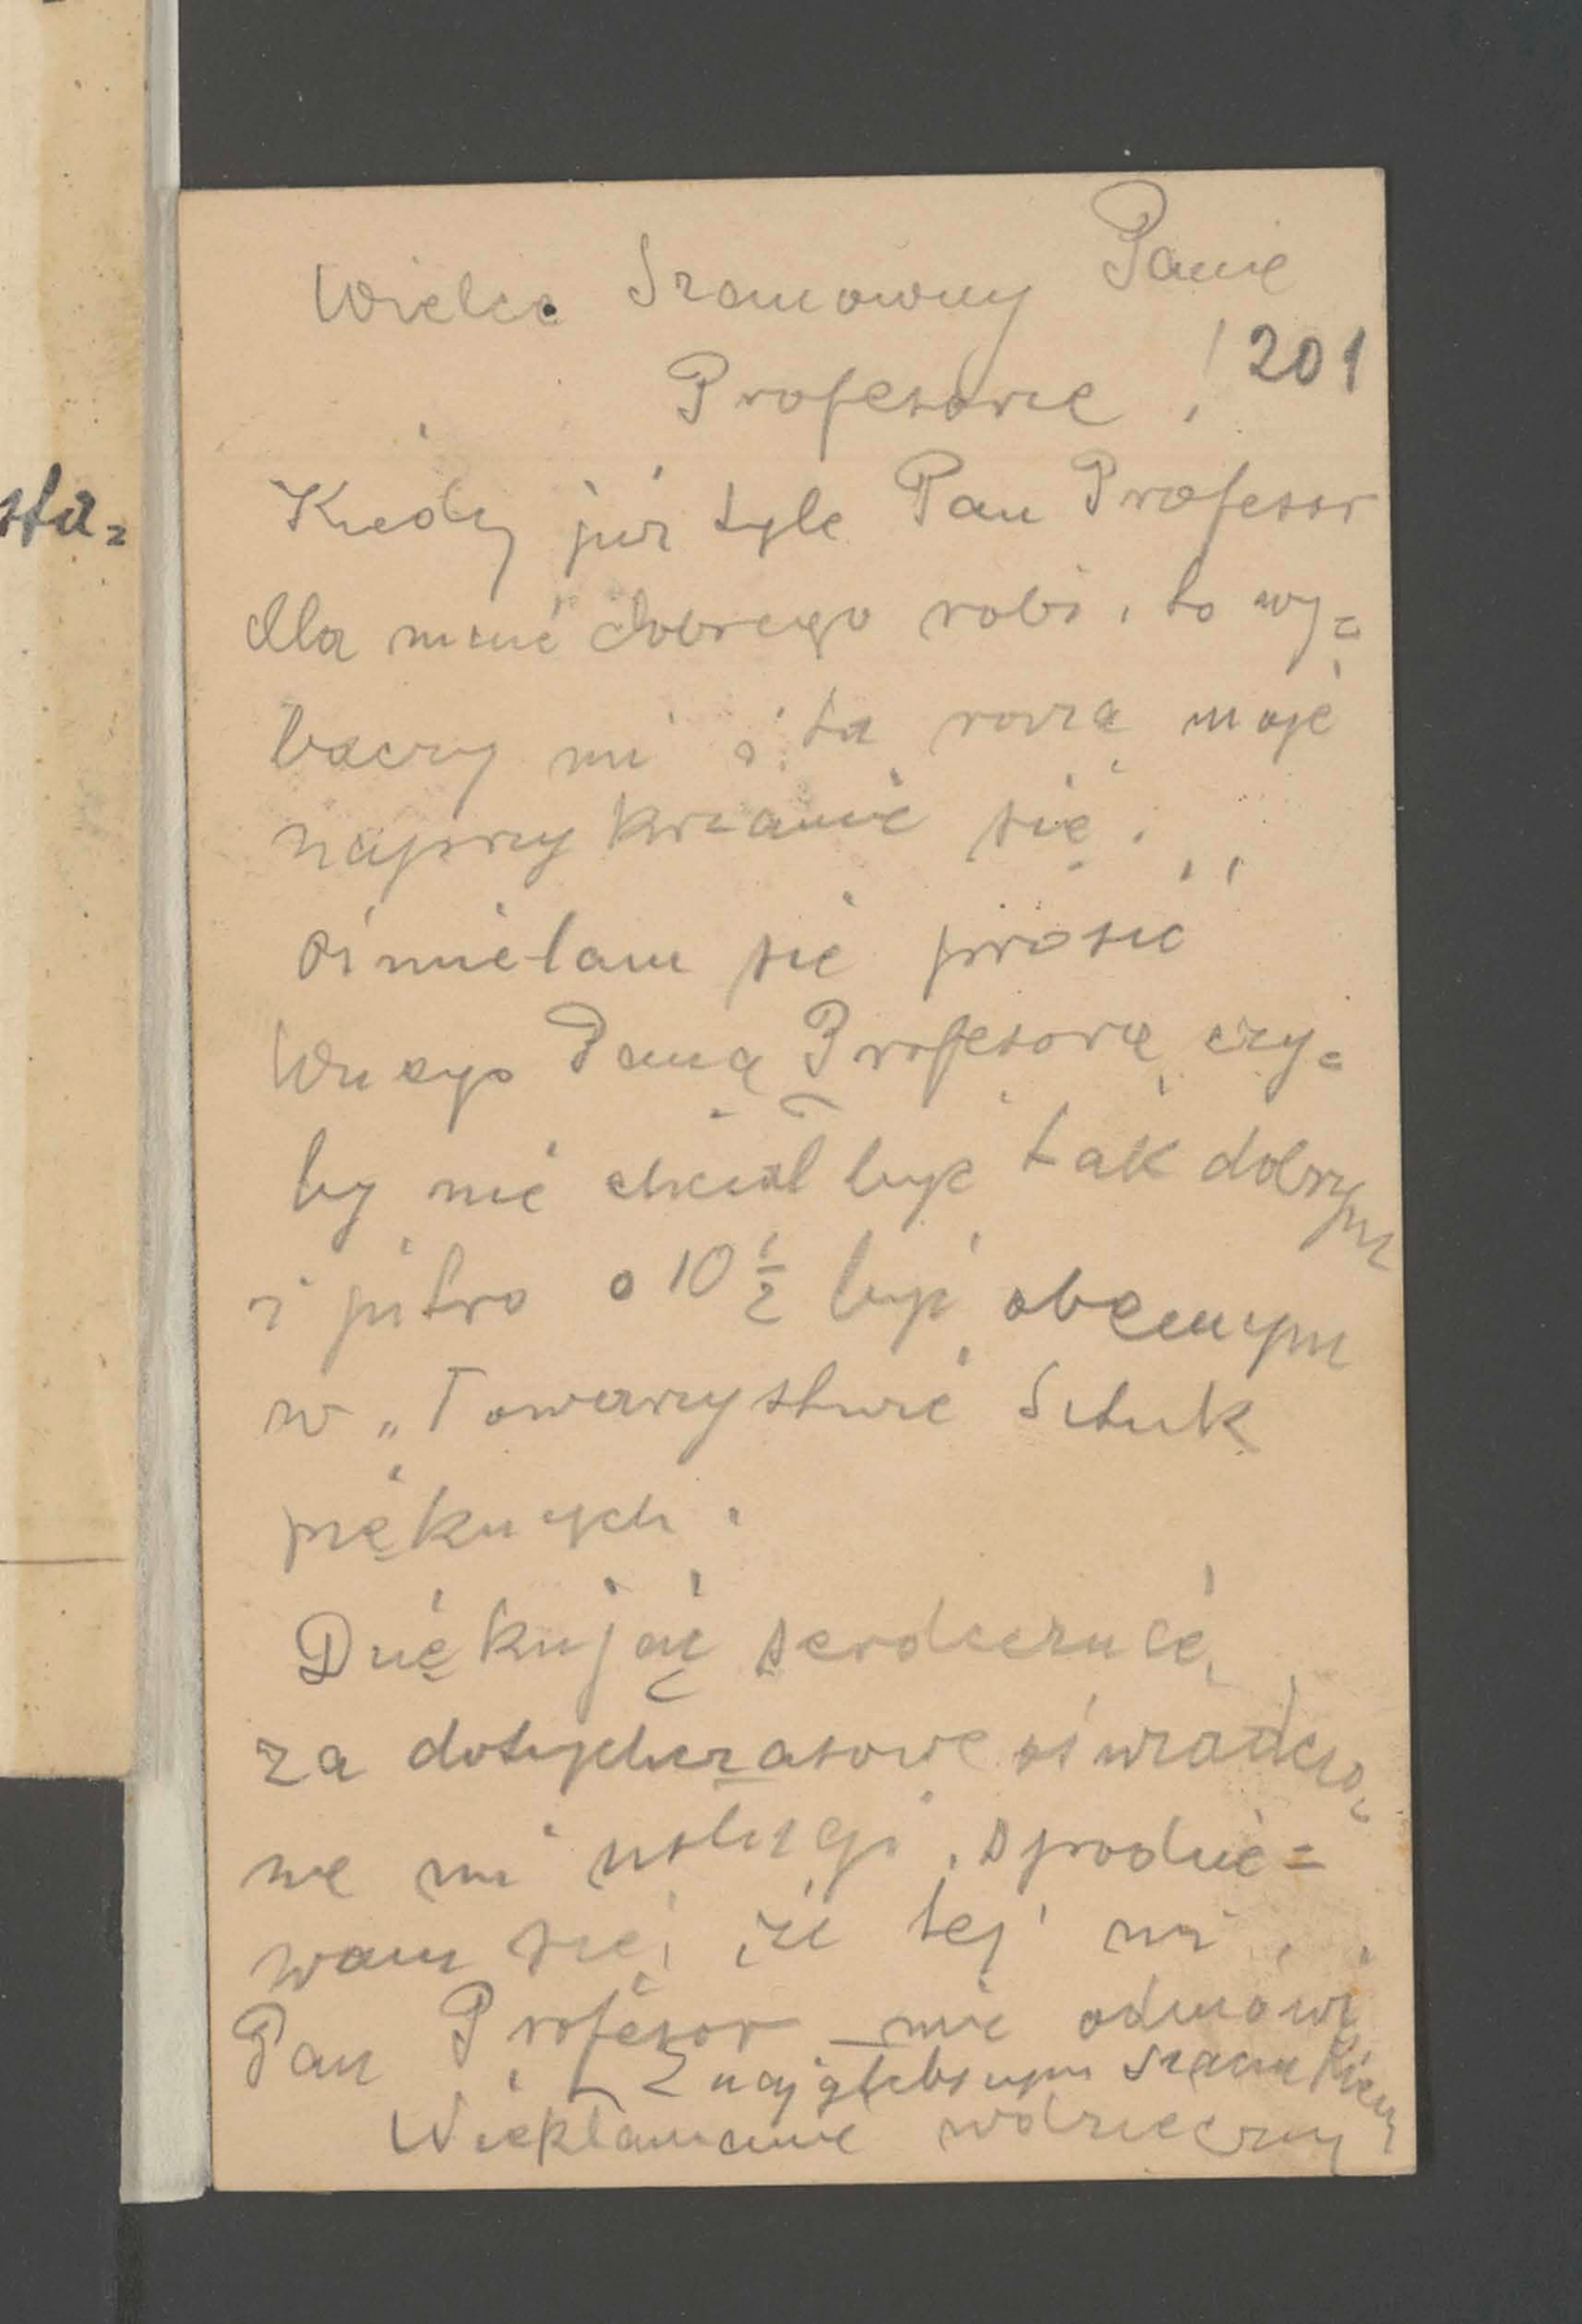 sta=
Wielce Szanowny Panie
Profesorze !
201
Kiedy już tyle Pan Profesor
dla mnie dobrego robi, to wy=
baczy mi i tą razą moje
naprzykrzanie się.
ośmielam się prosić
Pana Profesora, czy=
by nie chciał być tak dobrym
i jutro o 10 ½ być obecnym
w „Towarzystwie Sztuk
pięknych.
Dziękując serdecznie,
za dotychczasowe oświadczo=
ne mi usługi, spodzie=
wam się, że tej mi
Pan Profesor nie odmówi
Z najgłębszym szacunkiem
wdzięczny